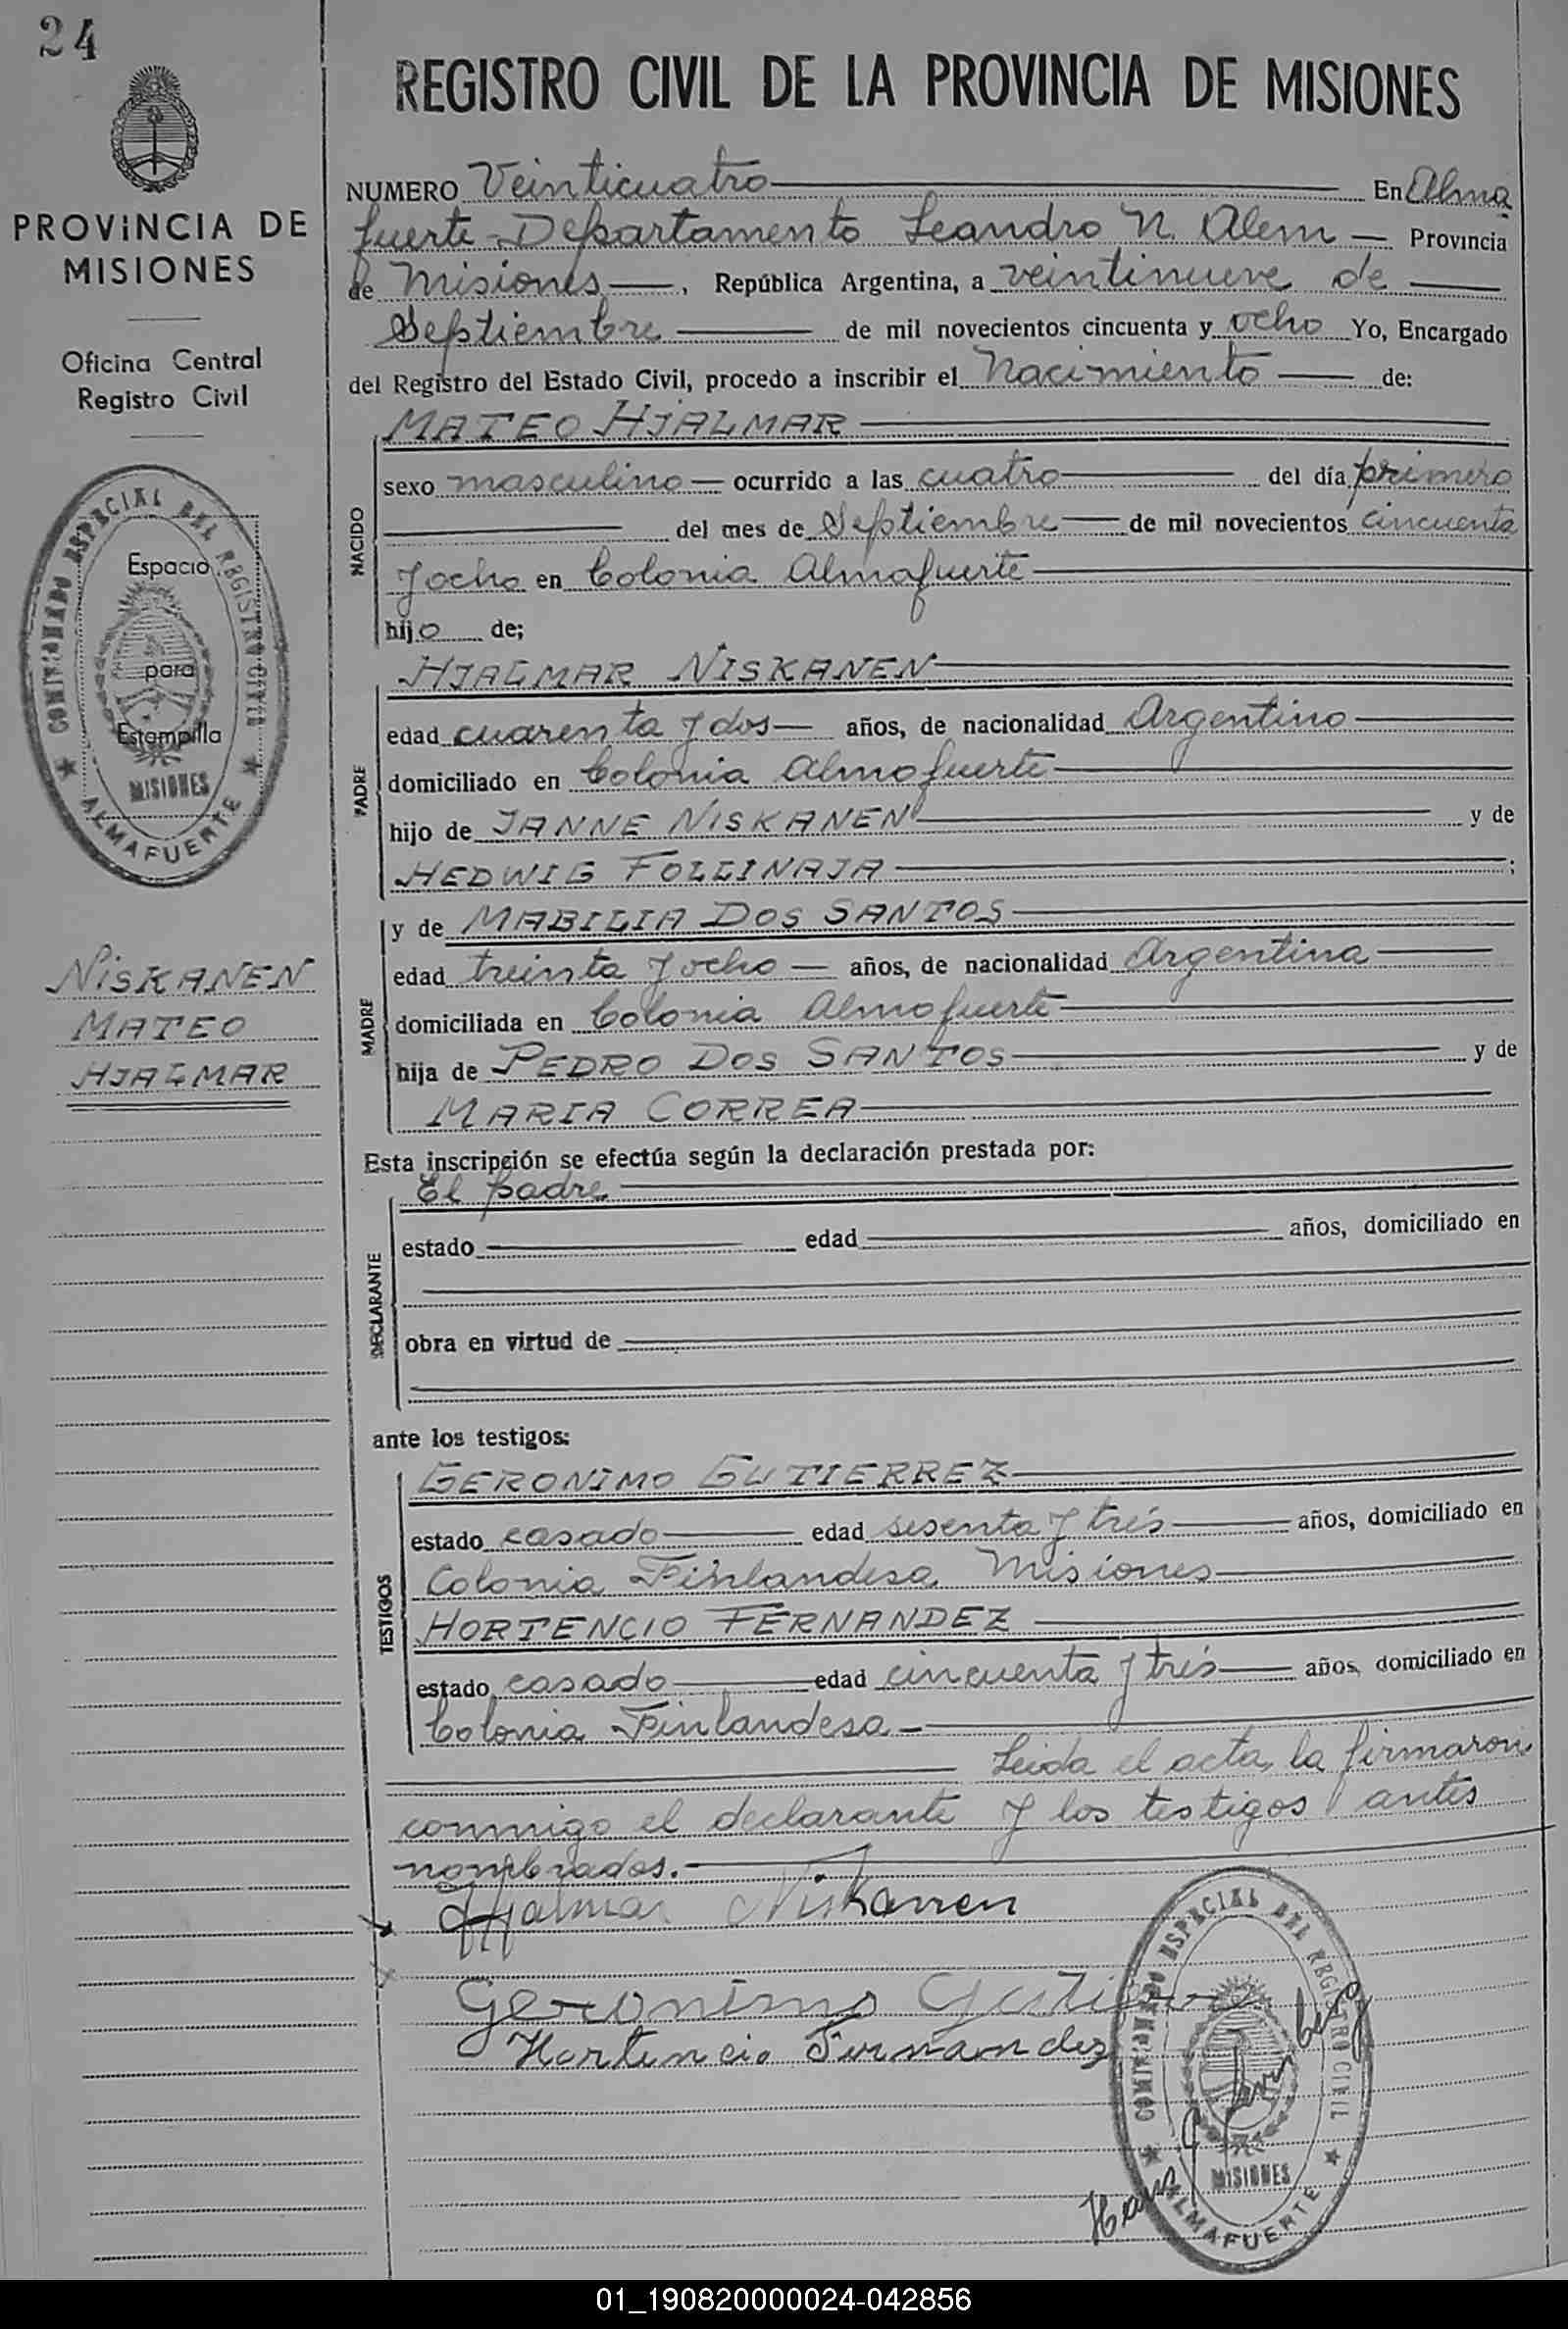 24
PROVINCIA DE
MISIONES
Oficina Central
Registro Civil
COMISIONADO ESPECIAL DEL REGISTRO CIVIL
Espacio
para
Estampilla
MISIONES
ALMAFUERTE
NISKANEN
MATEO
HJALMAR
REGISTRO CIVIL DE LA PROVINCIA DE MISIONES
NUMERO Veinticuatro En Alma
fuerte - Departamento Leandro N. Alem — Provincia
de Misiones —, República Argentina, a veintinueve de
Septiembre de mil novecientos cincuenta y ocho Yo, Encargado
del Registro del Estado Civil, procedo a inscribir el Nacimiento de:
NACIDO
MATEO HJALMAR
sexo masculino — ocurrido a las cuatro del día primero
del mes de Septiembre — de mil novecientos cincuenta
y ocho en Colonia Almafuerte
hijo de;
PADRE
HJALMAR NISKANEN
edad cuarenta y dos — años, de nacionalidad Argentino
domiciliado en Colonia Almafuerte
hijo de JANNE NISKANEN y de
HEDWIG FOLLINAJA ;
MADRE
y de MABILIA DOS SANTOS
edad treinta y ocho — años, de nacionalidad Argentina
domiciliada en Colonia Almafuerte
hija de PEDRO DOS SANTOS y de
MARIA CORREA
Esta inscripción se efectúa según la declaración prestada por:
DECLARANTE
El padre
estado edad años, domiciliado en
obra en virtud de
ante los testigos:
TESTIGOS
GERONIMO GUTIERREZ
estado casado edad sesenta y tres años, domiciliado en
Colonia Finlandesa Misiones
HORTENCIO FERNANDEZ
estado casado edad cincuenta y tres años, domiciliado en
Colonia Finlandesa -
Leida el acta, la firmaron
conmigo el declarante y los testigos antes
nombrados.-
Hjalmar Niskanen
Geronimo Gutierrez
Hortencio Fernandez
COMISIONADO ESPECIAL DEL REGISTRO CIVIL
MISIONES
ALMAFUERTE
01_190820000024-042856